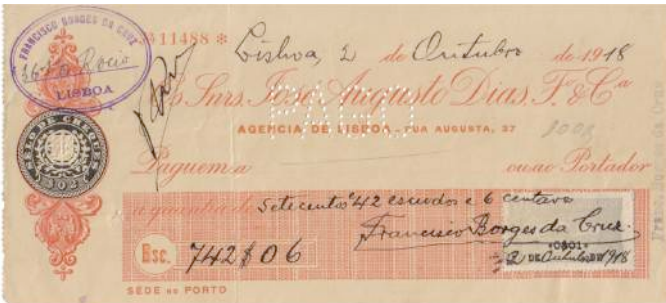 FRANCISCO BORGES DA CRUZ
Rocio
LISBOA
11488 * Lisboa, 2 de Outubro de 1918
Os Snrs. José Augusto Dias, Fº & Cª
PAGO
AGENCIA DE LISBOA - RUA AUGUSTA, 37
Paguem a ou ao Portador
SELO DE CHEQUES
a quantia de Setecentos 42 escudos e 6 centavos
Francisco Borges da Cruz
Esc. 742$06
2 DE Outubro DE 1918
SÉDE NO PORTO